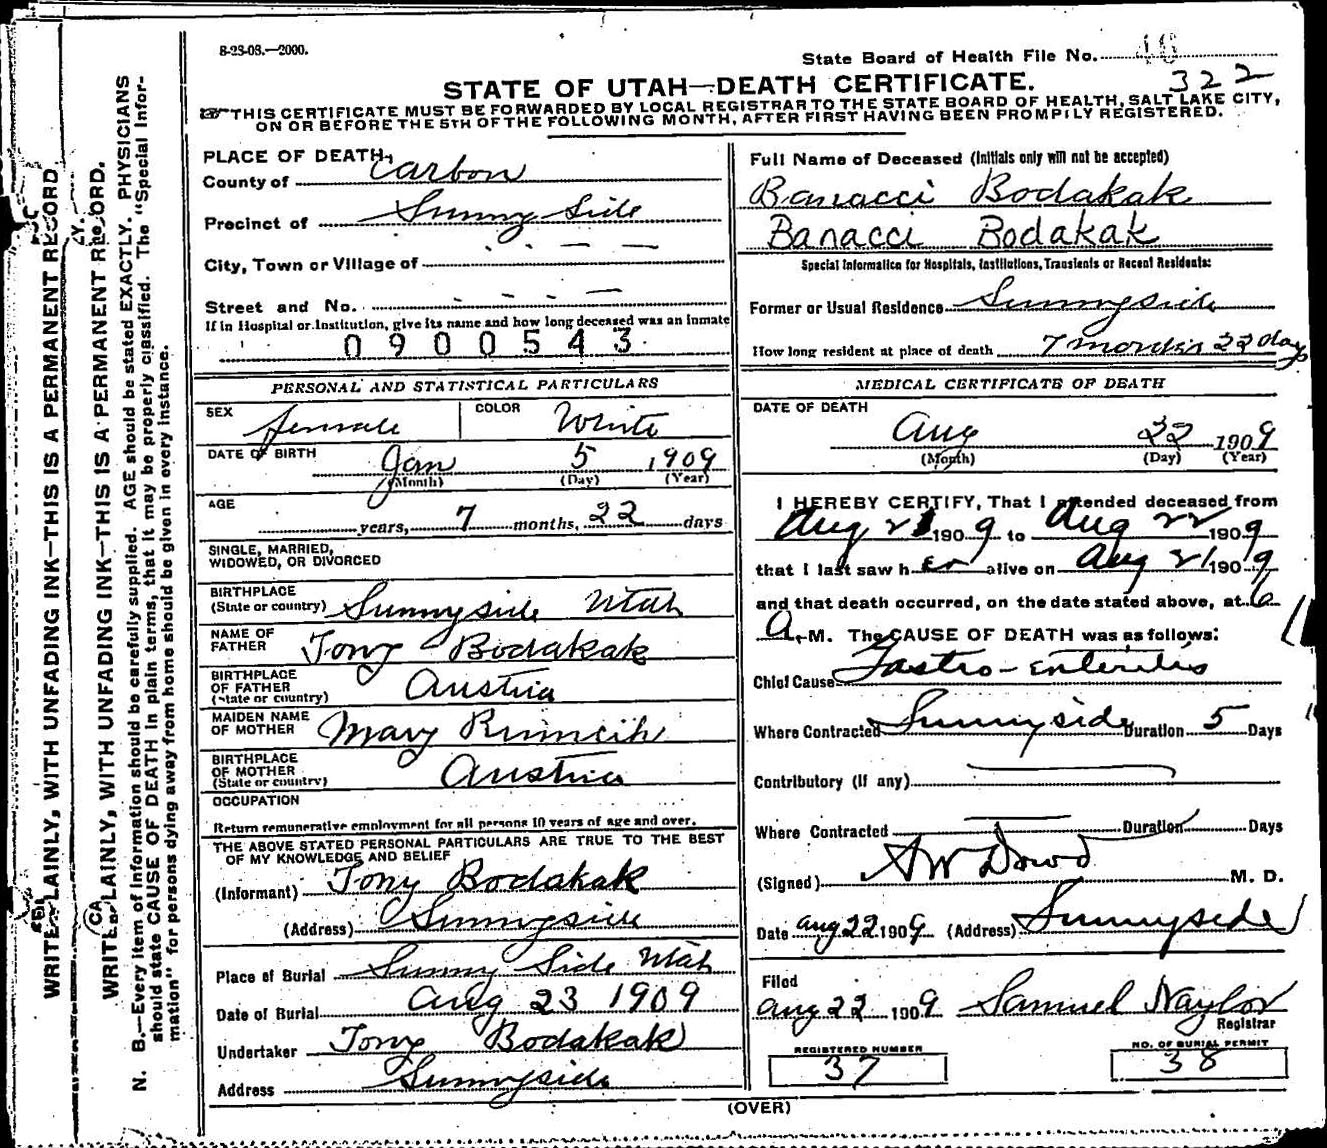 8-23-08.—2000.
State Board of Health File No.
322
STATE OF UTAH—DEATH CERTIFICATE.
THIS CERTIFICATE MUST BE FORWARDED BY LOCAL REGISTRAR TO THE STATE BOARD OF HEALTH, SALT LAKE CITY,
ON OR BEFORE THE 5TH OF THE FOLLOWING MONTH, AFTER FIRST HAVING BEEN PROMPTLY REGISTERED.
WRITE PLAINLY, WITH UNFADING INK—THIS IS A PERMANENT RECORD
WRITE PLAINLY, WITH UNFADING INK—THIS IS A PERMANENT RECORD.
N. B.—Every item of information should be carefully supplied. AGE should be stated EXACTLY. PHYSICIANS
should state CAUSE OF DEATH in plain terms, that it may be properly classified. The "Special Infor-
mation" for persons dying away from home should be given in every instance.
PLACE OF DEATH,
County of Carbon
Precinct of Sunny Side
City, Town or Village of — —
Street and No. - - - —
If in Hospital or Institution, give its name and how long deceased was an inmate
0900543
PERSONAL AND STATISTICAL PARTICULARS
SEX female COLOR White
DATE OF BIRTH Jan 5 1909
(Month) (Day) (Year)
AGE years, 7 months, 22 days
SINGLE, MARRIED,
WIDOWED, OR DIVORCED
BIRTHPLACE
(State or country) Sunnyside Utah
NAME OF
FATHER Tony Bodakak
BIRTHPLACE
OF FATHER
(State or country) Austria
MAIDEN NAME
OF MOTHER Mary
BIRTHPLACE
OF MOTHER
(State or country) Austria
OCCUPATION
Return remunerative employment for all persons 10 years of age and over.
THE ABOVE STATED PERSONAL PARTICULARS ARE TRUE TO THE BEST
OF MY KNOWLEDGE AND BELIEF
(Informant) Tony Bodakak
(Address) Sunnyside
Place of Burial Sunny Side Utah
Date of Burial Aug 23 1909
Undertaker Tony Bodakak
Address Sunnyside
Full Name of Deceased (Initials only will not be accepted)
Banacci Bodakak
Banacci Bodakak
Special Information for Hospitals, Institutions, Transients or Recent Residents:
Former or Usual Residence Sunnyside
How long resident at place of death 7 months 22 days
MEDICAL CERTIFICATE OF DEATH
DATE OF DEATH
Aug 22 1909
(Month) (Day) (Year)
I HEREBY CERTIFY, That I attended deceased from
Aug 21 1909 to Aug 22 1909
that I last saw her alive on Aug 21 1909
and that death occurred, on the date stated above, at 6
A. M. The CAUSE OF DEATH was as follows:
Chief Cause Gastro-enteritis
Where Contracted Sunnyside Duration 5 Days
Contributory (if any)
Where Contracted Duration Days
(Signed) AW Dowd M. D.
Date Aug 22 1909 (Address) Sunnyside
Filed
Aug 22 1909 Samuel Naylor
Registrar
REGISTERED NUMBER
37
NO. OF BURIAL PERMIT
38
(OVER)